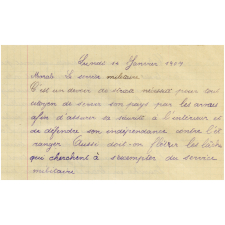 Lundi 11 Janvier 1909
Morale. Le service militaire.
C'est un devoir de stricte nécessité pour tout
citoyen de servir son pays par les armes
afin d'assurer sa sécurité à l'intérieur et
de défendre son indépendance contre l'é
tranger Aussi doit-on flétrir les lâches
qui cherchent à s'exempter du service
militaire.